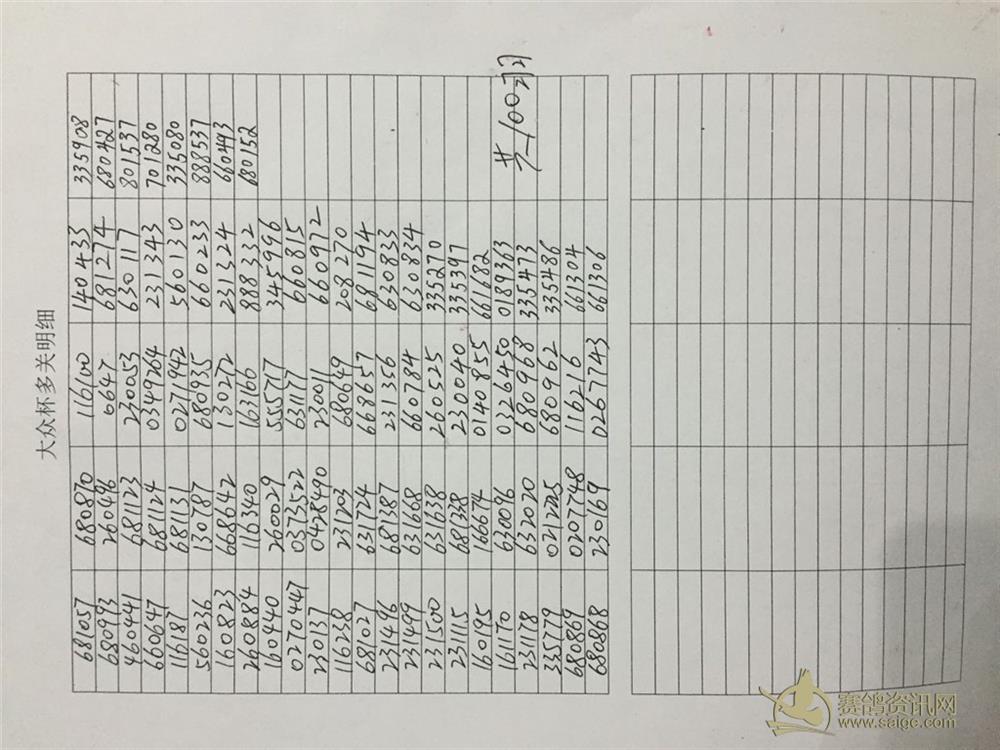 大众杯多关明细
681057 680870 116100 140433 335908
680993 260496 6647 681274 680427
460441 681123 230053 630117 801537
660647 681124 0349264 231343 701280
116187 681131 0271942 560130 335080
560236 130787 680935 660233 888537
160823 668642 130272 231324 660493
260884 116340 163166 888332 680152
160440 260029 555717 345996
0270447 0373522 631177 660815
230137 0428490 230011 660972
116238 231203 680649 208270
681027 631724 668657 681194
231496 681387 231356 630833
231499 631668 660784 630834
231500 631638 260525 335270
231115 681338 230040 335397
160195 166674 0140855 661682
161170 630096 0326450 0189363 共100羽
231178 632020 680968 335473
335779 021205 680962 335486
680869 0207748 116216 661304
680868 230169 0267743 661306
赛鸽资讯网
www.saigc.com